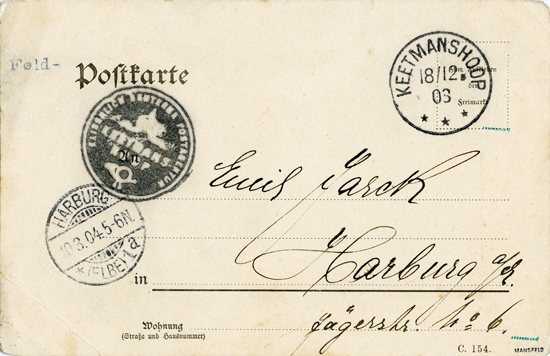 Feld-
Postkarte
KEETMANSHOOP
18/12.
03
* * *
Freimarke
An
Emil Jarck
HARBURG
10.3.04.5-6N.
* (ELBE) 1a
in
Harburg a/E.
Jägerstr. No 6.
Wohnung
(Straße und Hausnummer)
C. 154.
MANSFELD